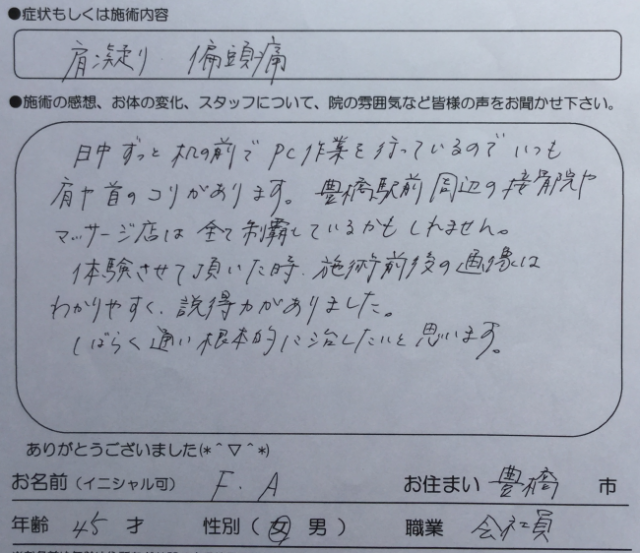 ●症状もしくは施術内容
肩凝り 偏頭痛
●施術の感想、お体の変化、スタッフについて、院の雰囲気など皆様の声をお聞かせ下さい。
日中ずっと机の前でPC作業を行っているのでいつも
肩や首のコリがあります。豊橋駅前周辺の接骨院や
マッサージ店は全て制覇しているかもしれません。
体験させて頂いた時、施術前後の画像は
わかりやすく、説得力がありました。
しばらく通い根本的に治したいと思います。
ありがとうございました(*^▽^*)
お名前(イニシャル可) F.A お住まい 豊橋 市
年齢 45 才 性別(女 男) 職業 会社員